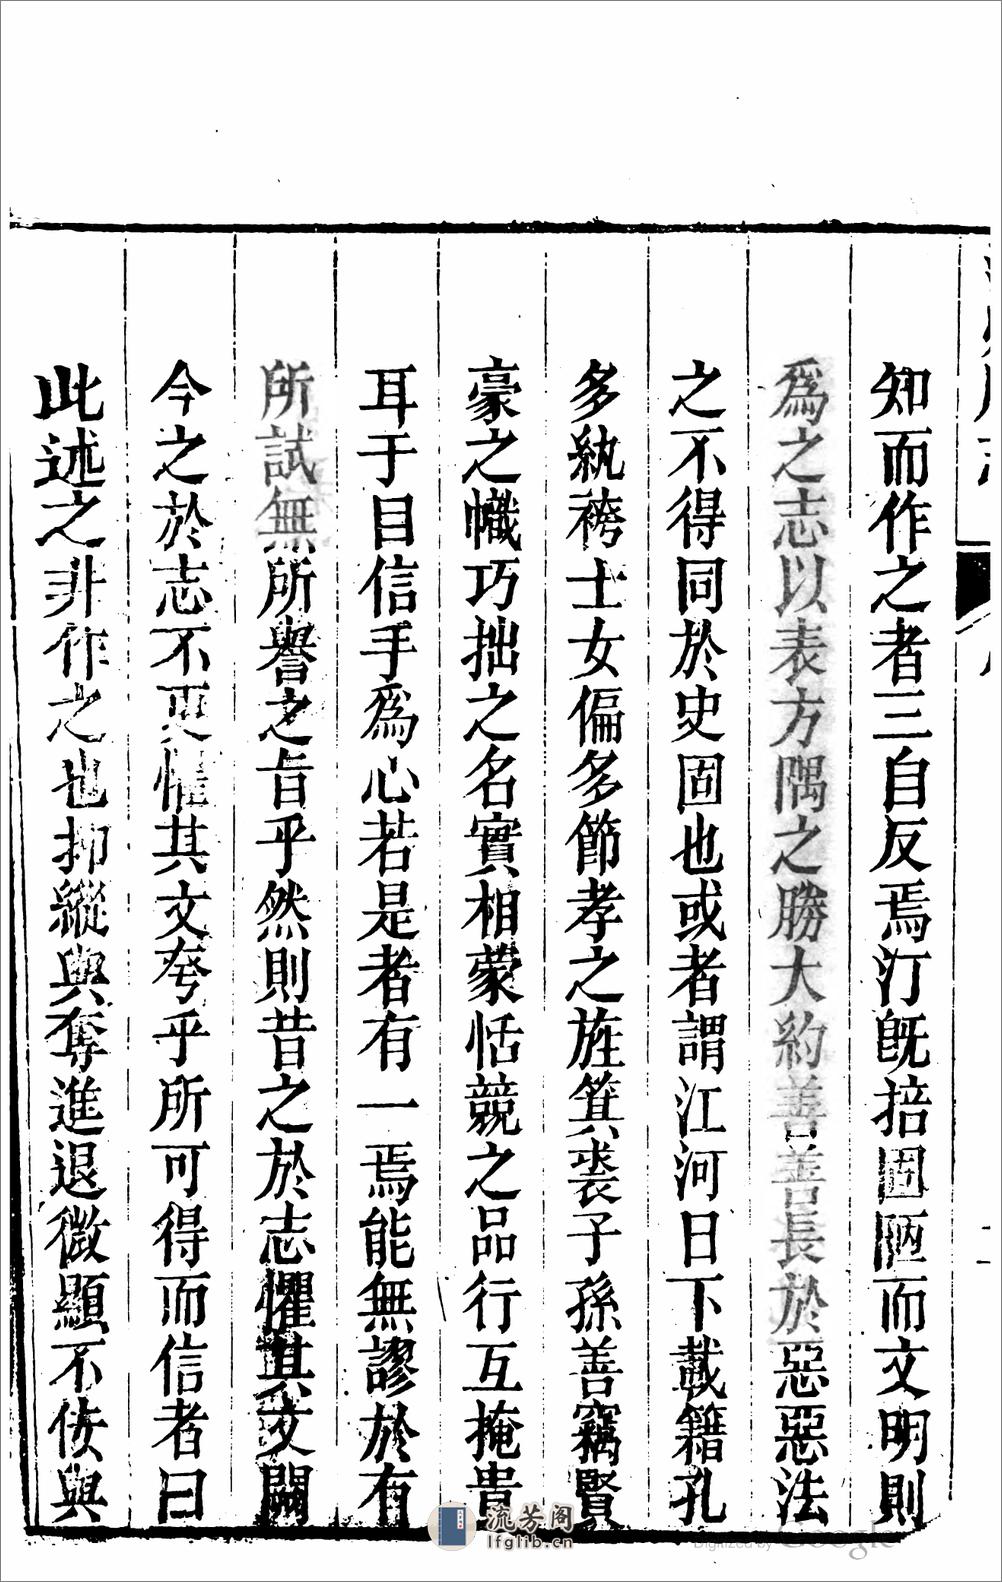 知而作之者三自反焉汀既掊固陋而文明則
爲之志以表方隅之勝大約善善長於惡惡法
之不得同於史固也或者謂江河日下載籍孔
多紈袴士女偏多節孝之旌箕裘子孫善竊賢
豪之幟巧拙之名實相蒙恬競之品行互掩貴
耳于目信手爲心若是者有一焉能無謬於有
所試無所譽之旨乎然則昔之於志懼其文闕
今之於志不更懼其文夸乎所可得而信者曰
此述之非作之也抑縱與奪進退微顯不佞與
流芳阁
lfglib.cn
Digitized by Google